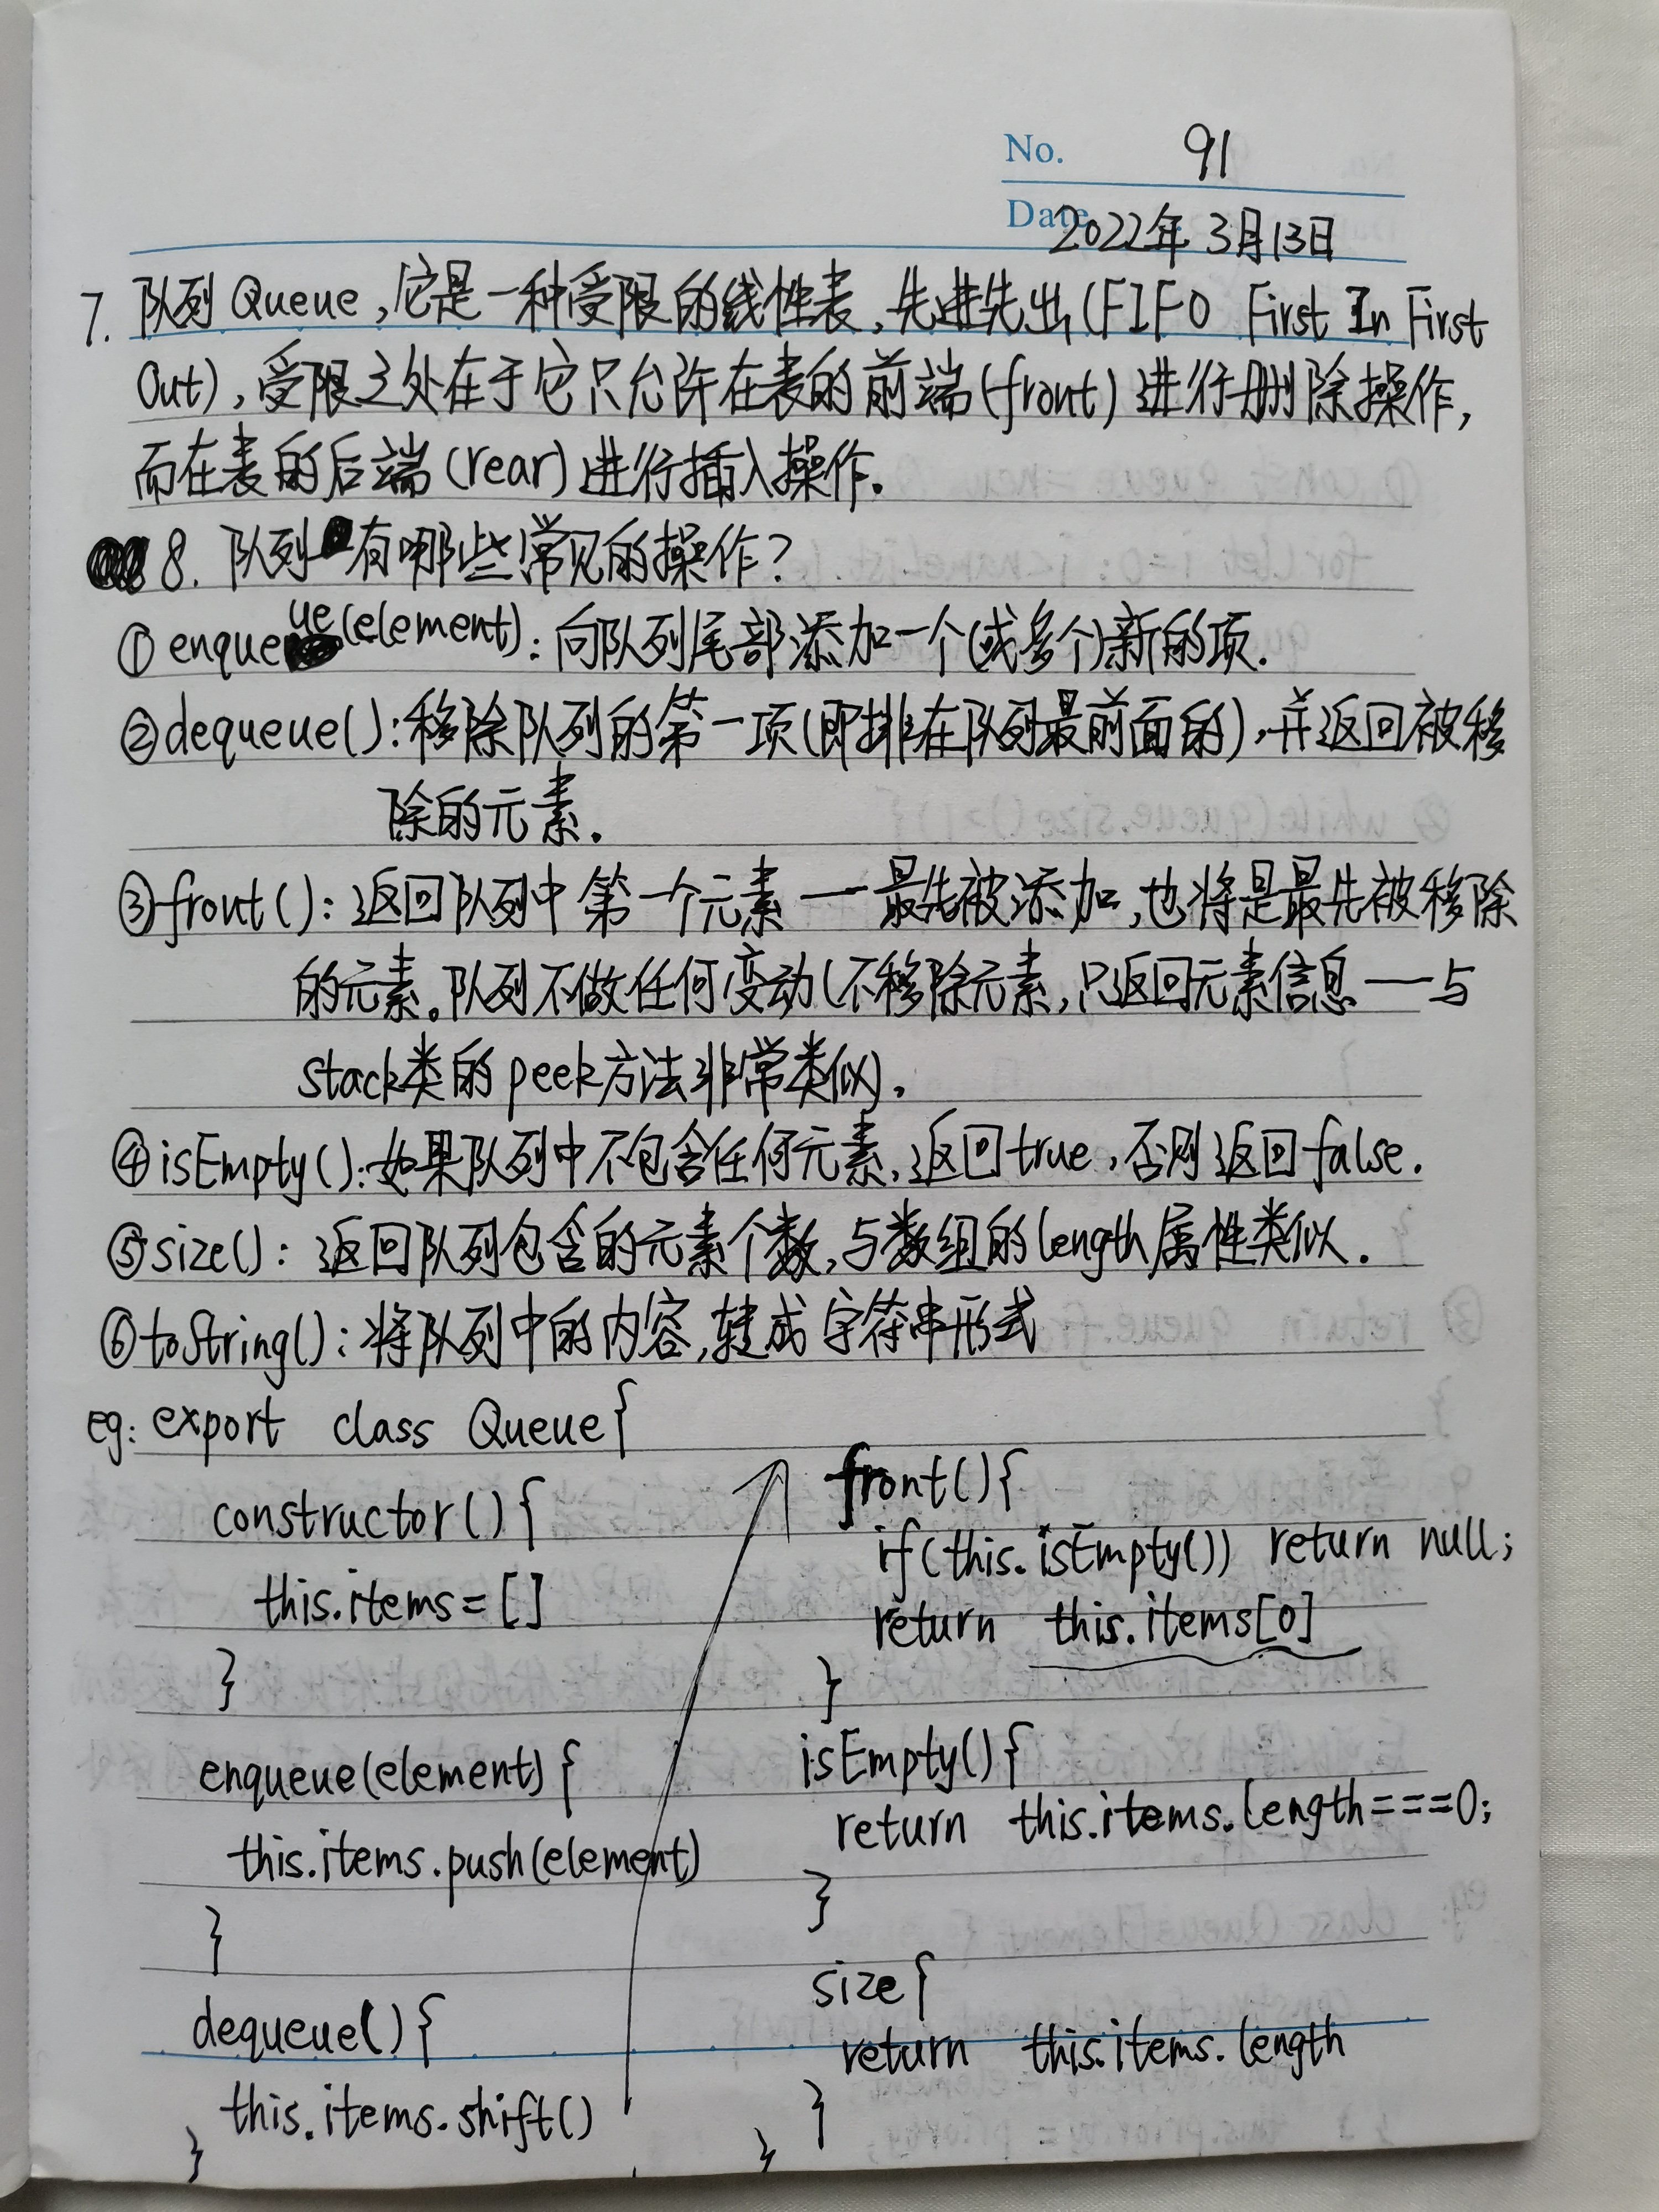 No. 91
Date 2022年3月13日
7. 队列Queue,它是一种受限的线性表,先进先出(FIFO First In First
Out),受限之处在于它只允许在表的前端(front)进行删除操作,
而在表的后端(rear)进行插入操作.
8. 队列有哪些常见的操作?
①enqueue(element):向队列尾部添加一个(或多个)新的项.
②dequeue():移除队列的第一项(即排在队列最前面的),并返回被移
除的元素.
③front():返回队列中第一个元素一最先被添加,也将是最先被移除
的元素。队列不做任何变动(不移除元素,只返回元素信息——与
stack类的peek方法非常类似).
④isEmpty():如果队列中不包含任何元素,返回true,否则返回false.
⑤size():返回队列包含的元素个数,与数组的length属性类似.
⑥toString():将队列中的内容,转成字符串形式
eg: export class Queue{
constructor(){
this.items=[]
}
enqueue(element){
this.items.push(element)
}
dequeue(){
this.items.shift()
}
front(){
if(this.isEmpty()) return null;
return this.items[0]
}
isEmpty(){
return this.items.length===0;
}
size{
return this.items.length
}
}